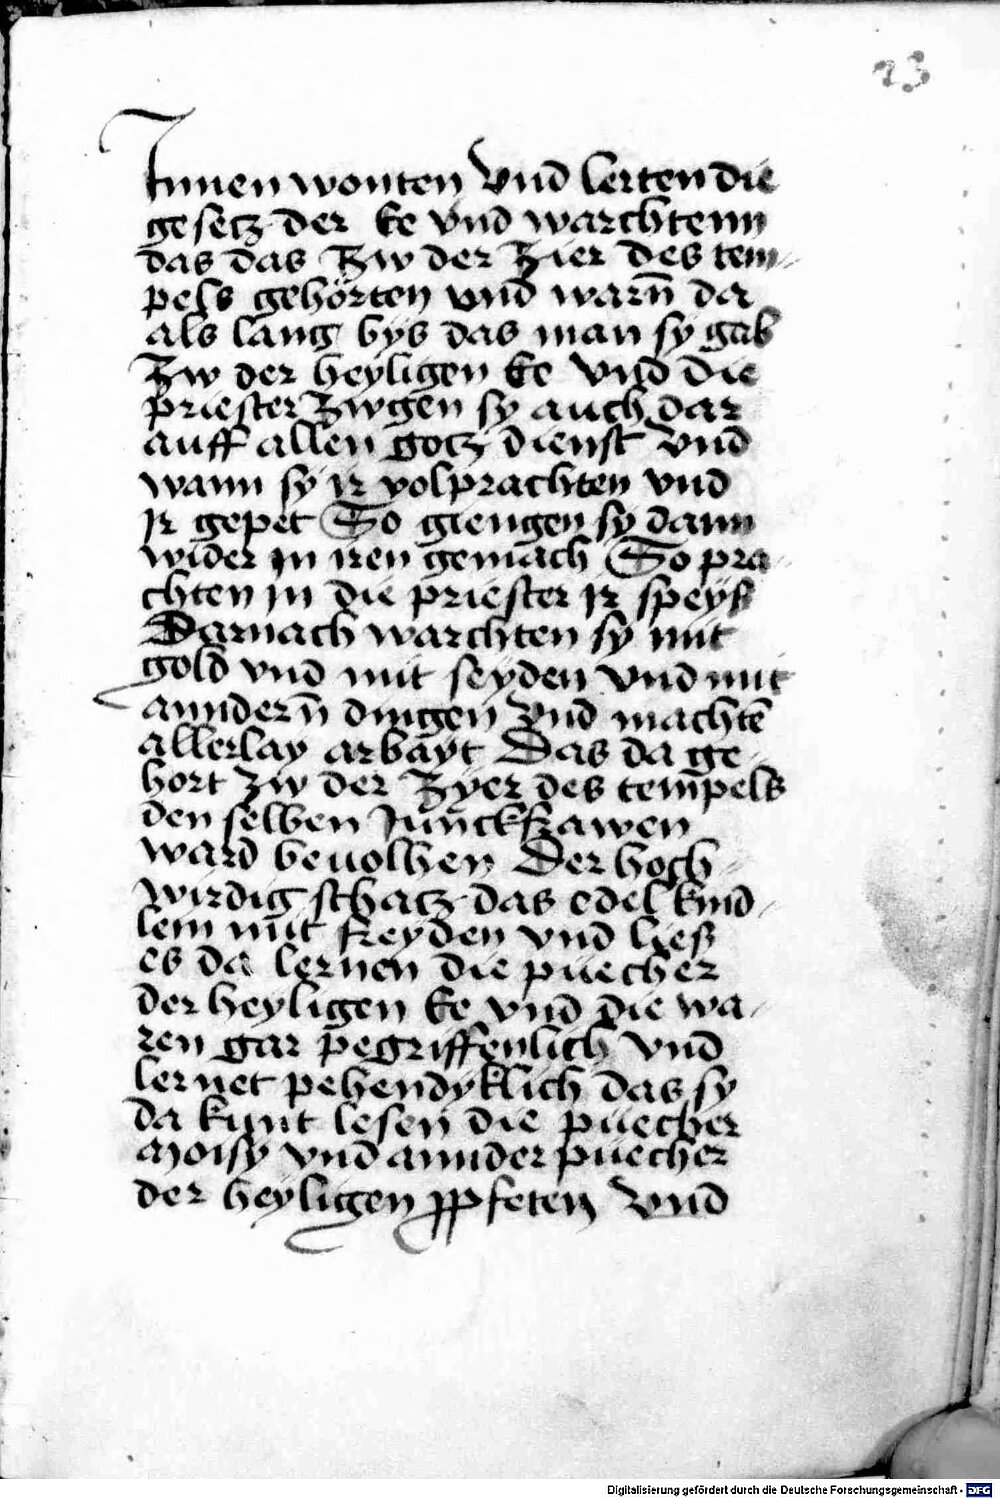 23
Innen wonten vnd lerten die
gesetz der Ee vnd warchtenn
das das Zw der Zier des tem-
pels gehörten vnd warn̄ da
als lang bys das man sy gab
Zw der heyligen Ee vnd die
priester Zwgen sy auch dar
auff allen gotz dienst vnd
wann sy ir volprachten vnd
Ir gepet So giengen sy dann
wider in iren gemach So pra-
chten in die priester Ir speyß
Darnach warchten sy mit
gold vnd mit seyden vnd mit
anndern̄ dingen vnd machtē
allerlay arbayt Das da ge-
hort zw der Zyer des tem̄pels
den selben Junckfrawen
ward beuolhen Der hoch-
wirdig schatz das edel kind-
lein mit freyden vnd ließ
es da lernen die puecher
der heyligen Ee vnd die wa-
ren gar pegriffenlich vnd
lernet pehendyklich das sy
da kunt lesen die puecher
Moisy vnd annder puecher
der heyligen ꝓpfeten vnd
Digitalisierung gefördert durch die Deutsche Forschungsgemeinschaft - DFG